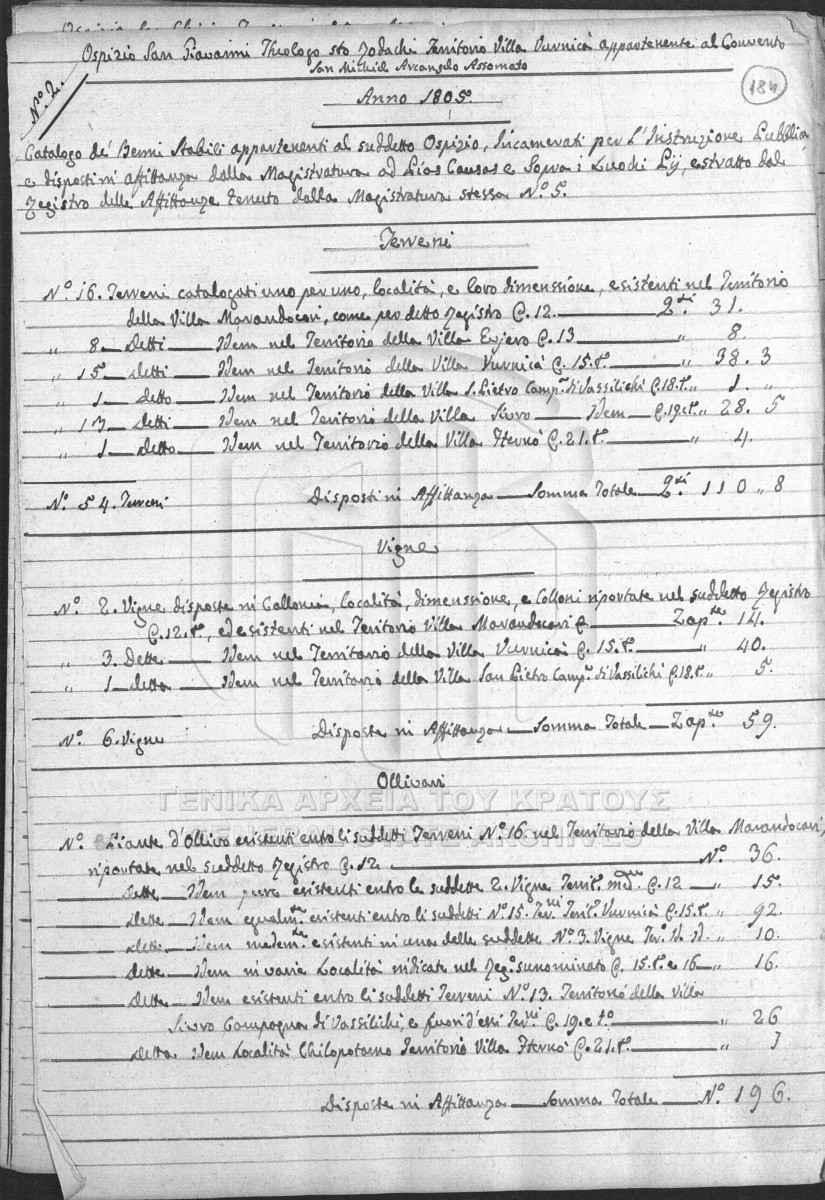 Ospizio San Giovanni Theologo sto Jodachi Territorio Villa Vurnicà appartenente al Convento
San Michiel Arcangelo Assomato
184
N.º 2.
Anno 1805.
Catalogo de' Benni Stabili appartenenti al suddetto Ospizio, Incamerati per l'Instruzione Pubblica
e disposti in affittanza dalla Magistratura ad Pias Causas e Sopra i Luochi Pij, estratto dal
Registro delle Affittanze tenuto dalla Magistratura stessa N.º 5.
Terreni
N.º 16. Terreni catalogati uno per uno, località, e loro dimenssione, esistenti nel Territorio
della Villa Marandocori, come per detto Registro C. 12. 31.
„ 8 Detti Idem nel Territorio della Villa Exjero C. 13 „ 8.
„ 15 detti Idem nel Territorio della Villa Vurnicà C. 15. t.º „ 38. 3
„ 1 detto Idem nel Territorio della Villa S. Pietro Camp.ª di Vassilichi C. 18. t.º „ 1. „
„ 13 Detti Idem nel Territorio della Villa Sivro Idem C. 19. t.º „ 28. 5
„ 1 detto Idem nel Territorio della Villa Fternò C. 21. t.º „ 4.
N.º 54. Terreni Disposti in Affittanza Somma Totale 110 „ 8
Vigne
N.º 2. Vigne disposte in Collonia, località, dimenssione, e Colloni riportate nel suddetto Registro
C. 12. t.º, ed esistenti nel Territorio Villa Marandocori Zap.te 14.
„ 3. Dette Idem nel Territorio della Villa Vurnicà C. 15. t.º „ 40.
„ 1 detta Idem nel Territorio della Villa San Pietro Camp.ª di Vassilichi C. 18. t.º „ 5.
N.º 6. Vigne Disposte in Affittanza Somma Totale Zap.te 59.
Ollivari
ΓΕΝΙΚΑ ΑΡΧΕΙΑ ΤΟΥ ΚΡΑΤΟΥΣ
N.º Piante d'Ollivo esistenti entro li suddetti Terreni N.º 16. nel Territorio della Villa Marandocori,
riportate nel suddetto Registro C. 12 N.º 36.
Dette Idem pure esistenti entro le suddette 2. Vigne Territ.º med.mo C. 12 „ 15.
Dette Idem egualm.te esistenti entro li suddetti N.º 15. Ter.ni Terit.º Vurnicà C. 15. t.º „ 92.
Dette Idem medem.te esistenti in una delle suddette N.º 3. Vigne Ter.º Id. Id. „ 10.
Dette Idem in varie Località indicate nel Reg.º sunominato C. 15. t.º e 16 „ 16.
Dette Idem esistenti entro li suddetti Terreni N.º 13. Territorio della Villa
Sivro Campagna di Vassilichi, e fuori d'essi Ter.ni C. 19. e t.º „ 26
Detta Idem Località Chilopotamo Territorio Villa Fternò C. 21. t.º „ 1
Disposte in Affittanza Somma Totale N.º 196.